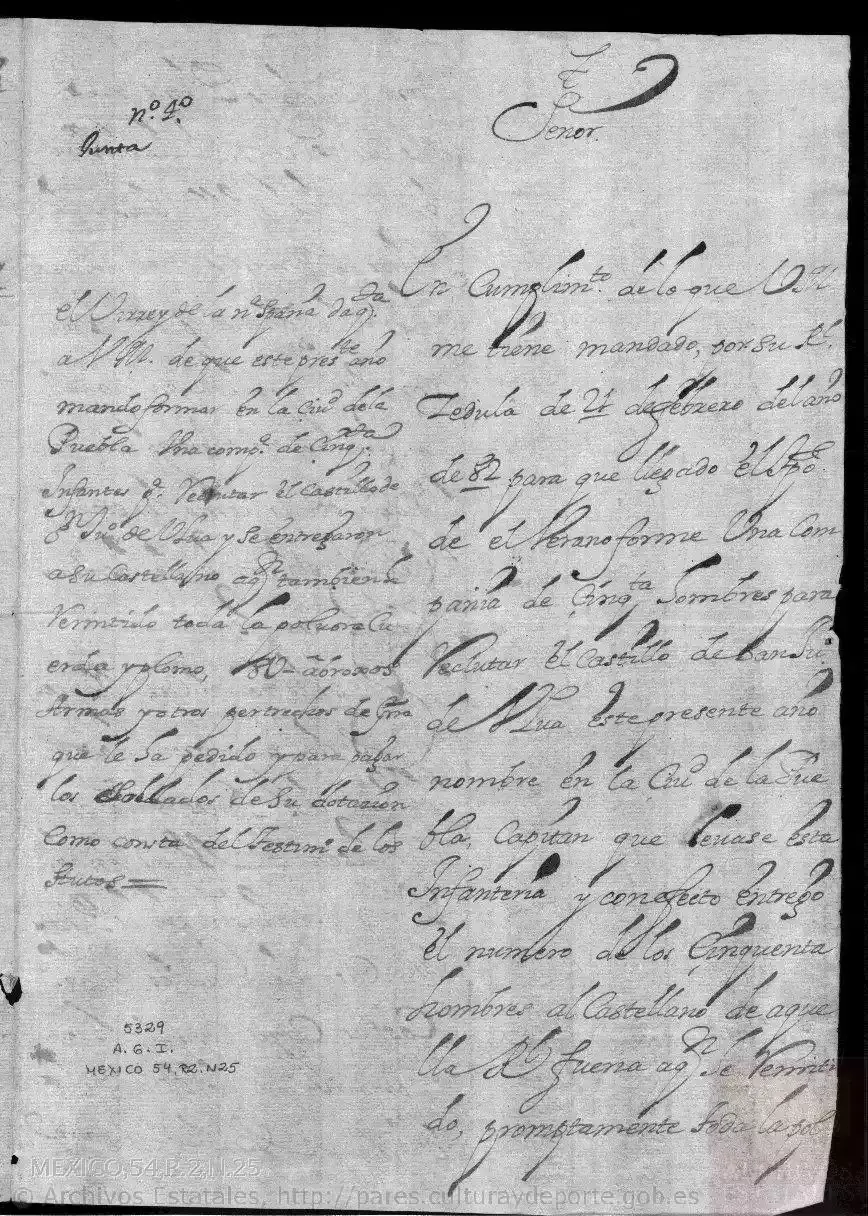 n.º 1.º
Junta
Señor.
el Virrey de la nª españa da qta
a V M. de que este preste año
mando formar en la Ciud dela
Puebla Una compª de Cinqta
Infantes pª Reclutar el Castillo de
Sn Juº de Ulua y se entregaron
a su Castellano aqn tambien a
Remitido toda la poluora Cu
erda y plomo,
Armas y otros pertrechos de Grra
que le ha pedido y para pagar
los Soldados de su dotazion
Como consta del Testimº de los
Autos =
En Cumplimto de lo que V M
me tiene mandado, por su Rl.
Zedula de 21 de febrero del año
de 82 para que llegado el tpo.
de el Verano forme Una Com
pania de Cinqta hombres para
Reclutar el Castillo de San Juº
de Ulua este presente año
nombre en la Ciud de la Pue
bla, Capitan que lleuase esta
Infanteria y con efecto entrego
el numero de los Cinquenta
hombres al Castellano de aque
lla Rl fuerza aqn he Remiti
do, promptamente toda la pol
5329
A. G. I.
MEXICO 54.R2.N25
MEXICO,54,R.2,N.25
© Archivos Estatales, http://pares.culturaydeporte.gob.es